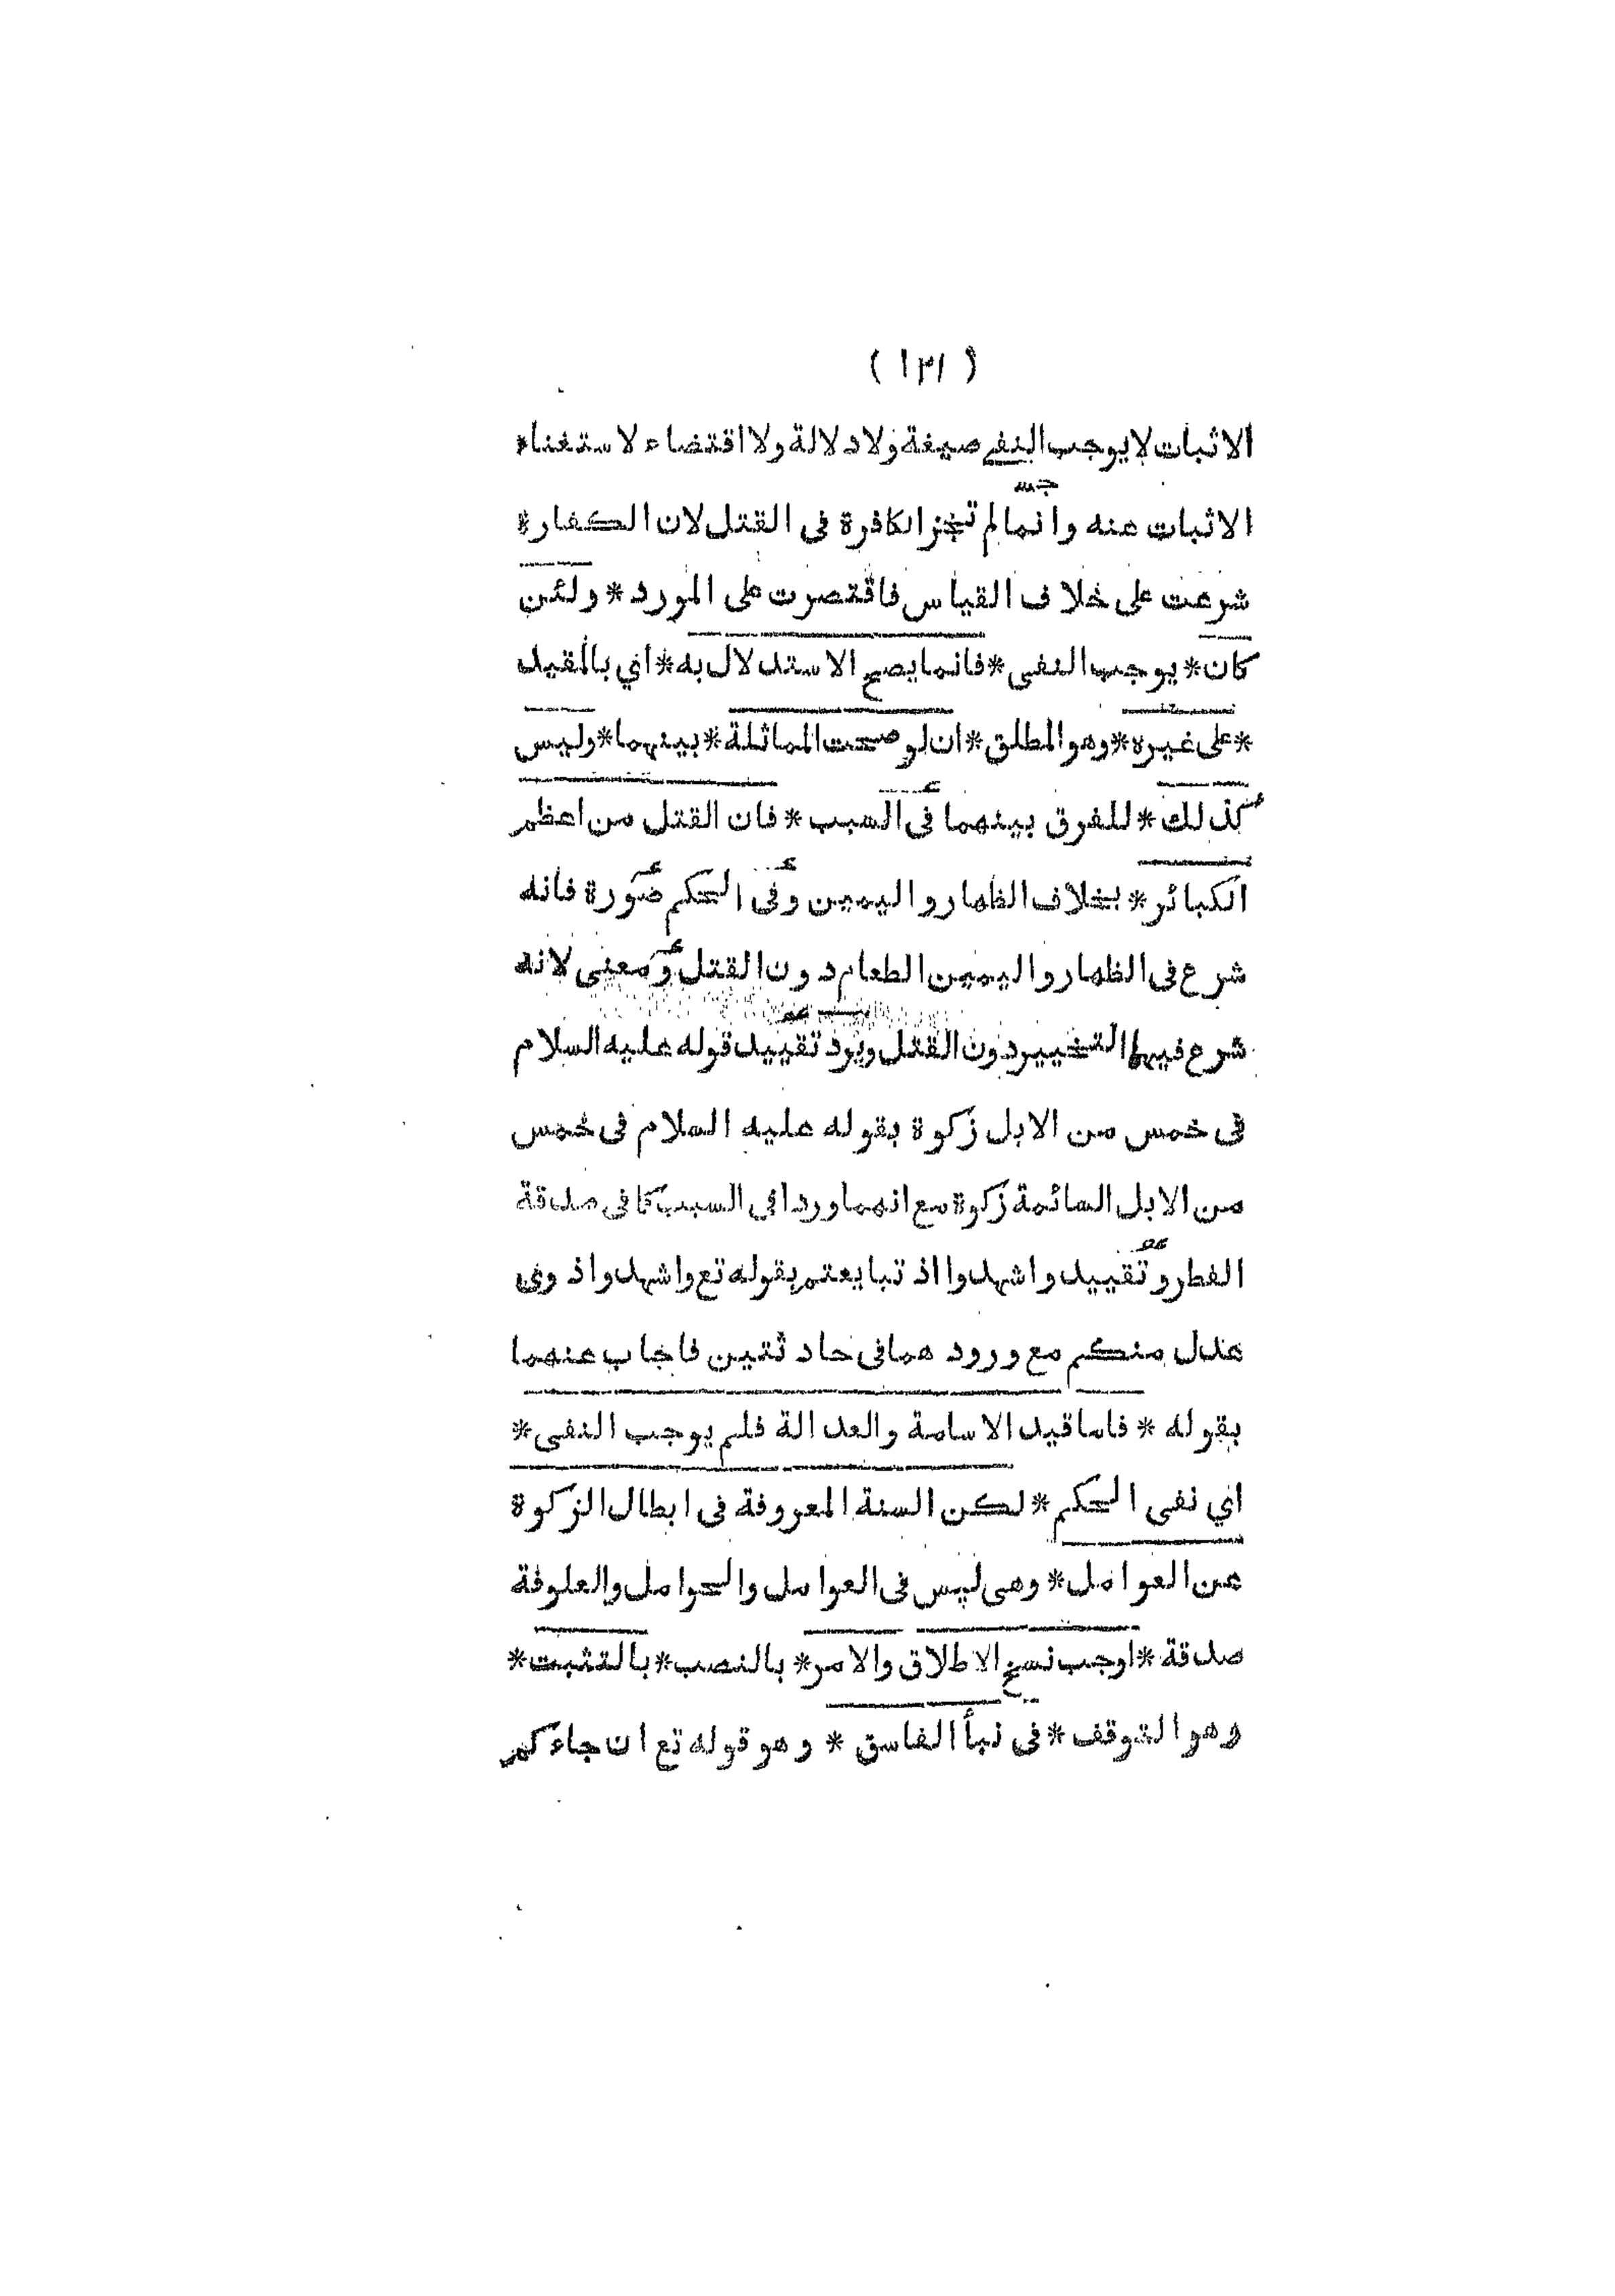 ( ١٢١ )
الاثبات لايوجب النفي صيغة ولادلالة ولااقتضاء لاستغناء
الاثبات عنه وانمالم تجز الكافرة فى القتل لان الكفارة
شرعت على خلاف القياس فاقتصرت على المورد * ولئن
كان * يوجب النفى * فانمايصح الاستدلال به * اي بالمقيد
* على غيره * وهو المطلق * ان لو صحت المماثلة * بينهما * وليس
كذلك * للفرق بينهما فى السبب * فان القتل من اعظم
الكبائر * بخلاف الظهار واليمين وفى الحكم صورة فانه
شرع فى الظهار واليمين الطعام دون القتل ومعنى لانه
شرع فيهما التخيير دون القتل ويرد تقييد قوله عليه السلام
فى خمس من الابل زكوة بقوله عليه السلام فى خمس
من الابل السائمة زكوة مع انهما وردا فى السبب كما فى صدقة
الفطر وتقييد واشهدوا اذ تبايعتم بقوله تع واشهدوا ذوى
عدل منكم مع ورود همافى حاد ثتين فاجاب عنهما
بقوله * فاما قيد الاسامة والعدالة فلم يوجب النفى *
اي نفى الحكم * لكن السنة المعروفة فى ابطال الزكوة
عن العوامل * وهى ليس فى العوامل والحوامل والعلوفة
صدقة * اوجب نسخ الاطلاق والامر * بالنصب * بالتثبت *
وهو التوقف * فى نبأ الفاسق * وهو قوله تع ان جاءكم